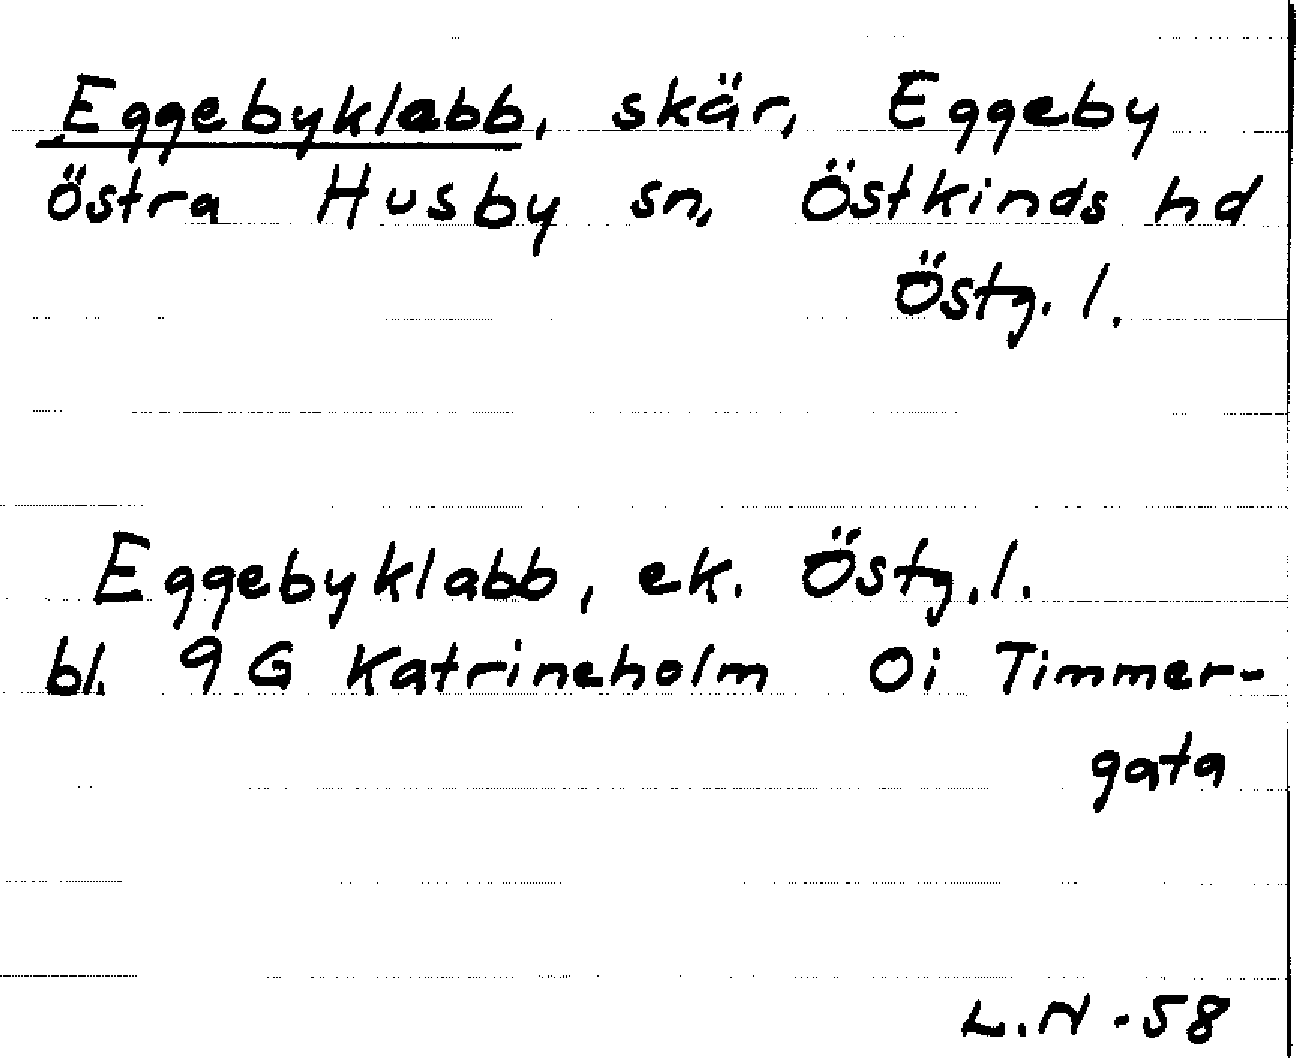 Eggebyklabb, skär, Eggeby
östra Husby sn, Östkinds hd
Östg. l.
Eggebyklabb, ek. Östg. l.
bl. 9 G Katrineholm 0i Timmer-
gata
L.N -58